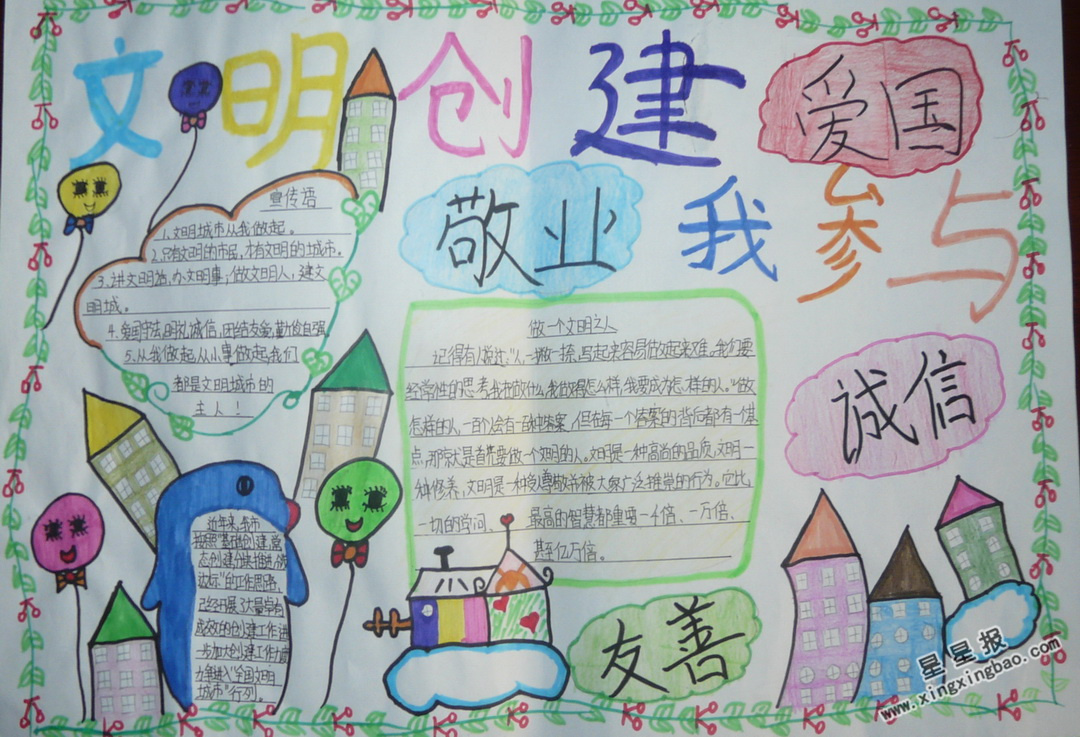 文明创建
我参与
爱国
敬业
诚信
友善
宣传语
1.文明城市从我做起。
2.只有文明的市民,才有文明的城市。
3.讲文明语,办文明事;做文明人,建文
明城。
4.爱国守法,明礼诚信,团结友爱,勤俭自强
5.从我做起,从小事做起,我们
都是文明城市的
主人!
做一个文明之人
记得有人说过:"人,一撇一捺,写起来容易做起来难。我们要
经常性的思考,我在做什么,我做得怎么样,我要成为怎样的人。"做
怎样的人,一百个人会有一百种答案,但在每一个答案的背后都有一个基
点,那就是首先要做一个文明的人。文明是一种高尚的品质,文明一
种修养,文明是一种受尊敬并被大家广泛推崇的行为。它比
一切的学问、 最高的智慧都重要一千倍、一万倍、
甚至亿万倍。
近年来,我市
按照"基础创建,常
态创建,分块推进
达标"的工作思路,
已经开展了大量卓有
成效的创建工作,进
一步加大创建工作力度
力争进入"全国文明
城市"行列。
星星报
www.xingxingbao.com